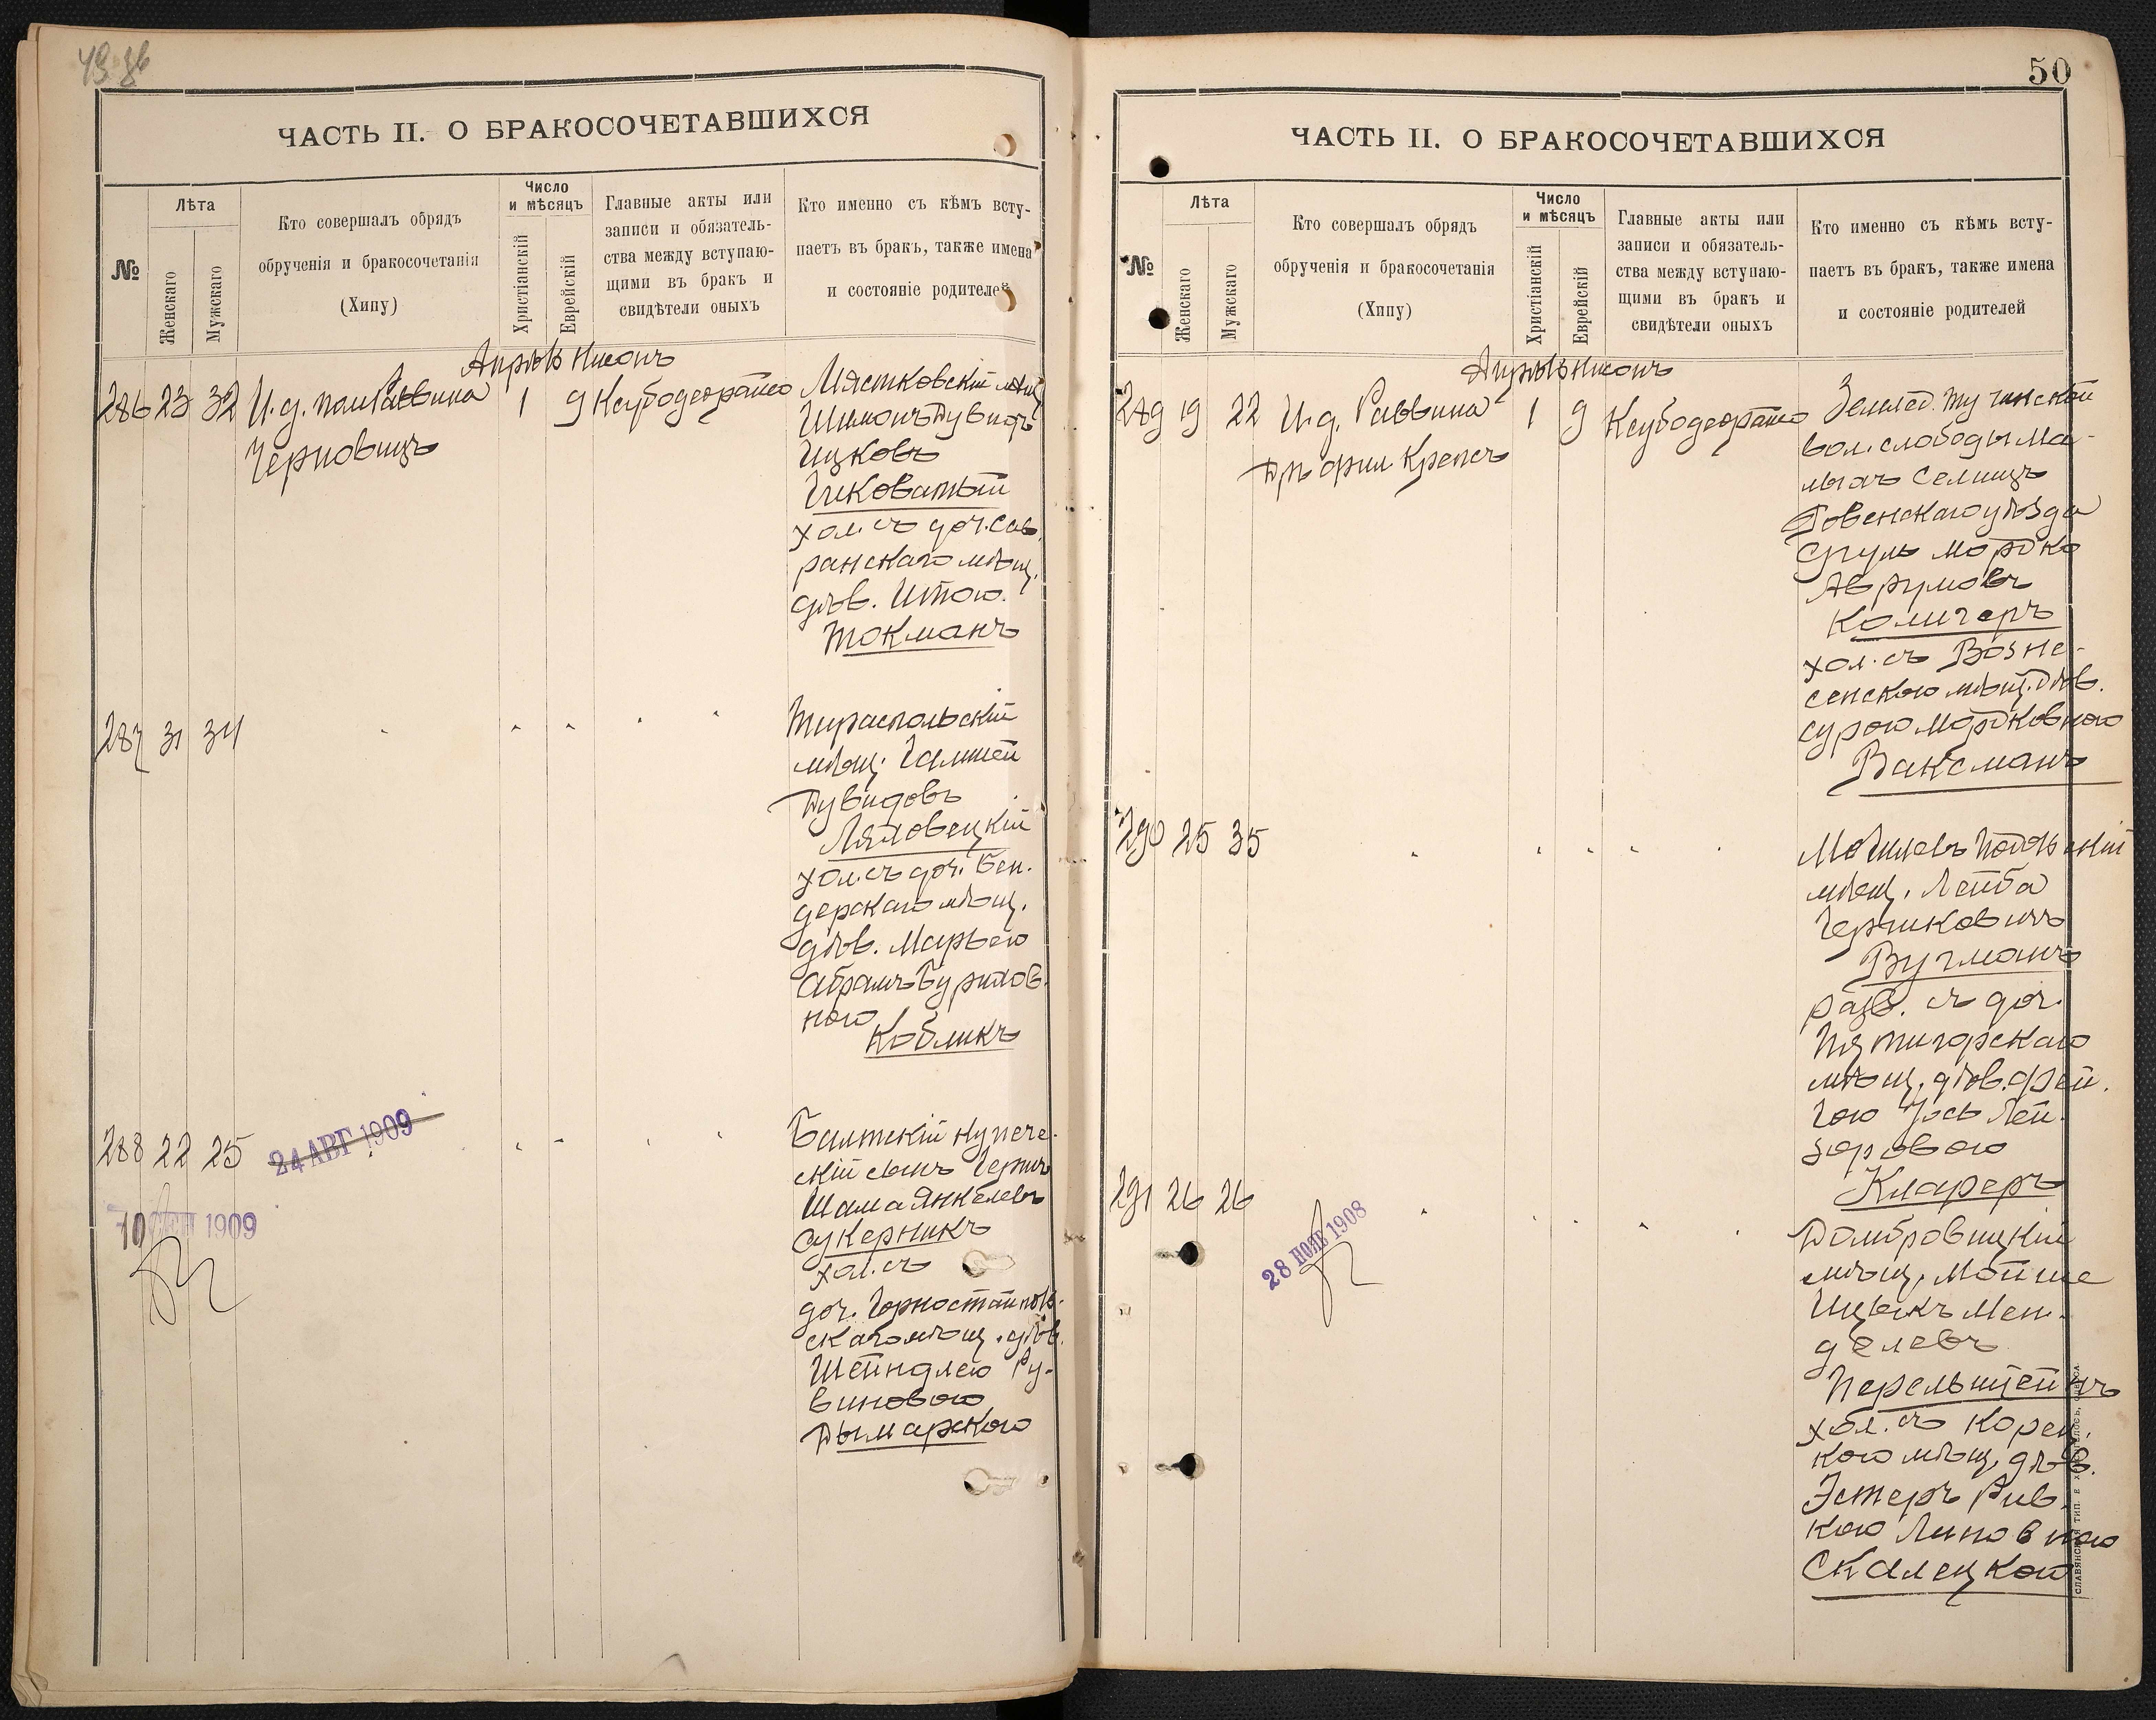 ЧАСТЬ II. О БРАКОСОЧЕТАВШИХСЯ
№
Лѣта
Женскаго
Мужскаго
Кто совершалъ обрядъ
обрученія и бракосочетанія
(Хипу)
Число
и мѣсяцъ
Христіанскій
Еврейскій
Главные акты или
записи и обязатель-
ства между вступаю-
щими въ бракъ и
свидѣтели оныхъ
Кто именно съ кѣмъ всту-
паетъ въ бракъ, также имена
и состояніе родителей
Апрѣль Нисонъ
286 23 32 И.д. пом Раввина 1 9
Черновицъ
Мястковскій мѣщ.
Шимонъ Дувидъ
Ицковъ
Чиковатый
хол. съ доч. Сав-
ранскаго мѣщ.
дѣв. Итою
Токманъ
287 31 34
Тираспольскій
мѣщ.
Дувидовъ
Ляховецкій
хол. съ доч. Бен-
дерскаго мѣщ.
дѣв. Марьею
Абрамъ Буримов-
ною
Кобликъ
288 22 25
24 АВГ 1909
10 СЕН 1909
Балтскій купече-
скій сынъ Гершъ
Шама Янкелевъ
Сукерникъ
хол. съ
доч. Горностайполь-
скаго мѣщ. дѣв.
Шейндлею Ру-
виновою
Дымарскою
50
ЧАСТЬ II. О БРАКОСОЧЕТАВШИХСЯ
№
Лѣта
Женскаго
Мужскаго
Кто совершалъ обрядъ
обрученія и бракосочетанія
(Хипу)
Число
и мѣсяцъ
Христіанскій
Еврейскій
Главные акты или
записи и обязатель-
ства между вступаю-
щими въ бракъ и
свидѣтели оныхъ
Кто именно съ кѣмъ всту-
паетъ въ бракъ, также имена
и состояніе родителей
Апрѣль Нисонъ
289 19 22 И.д. Раввина 1 9
Дръ фил. Крепсъ
Землед. Тучинской
вол. слободы Ма-
лыхъ Селищъ
Ровенскаго уѣзда
Сруль Мордко
Аврумовъ
Колкеръ
хол. съ Возне-
сенскою мѣщ. дѣв.
Сурою Мордковною
Ваксманъ
290 25 35
Могилевъ Подольскій
мѣщ. Лейба
Гершковичъ
Вугманъ
разв. съ доч.
Пятигорскаго
мѣщ. дѣв. Фрей-
Лей-
зоровою
Клаферъ
291 26 26
28 НОЯБ 1908
Домбровицкій
мѣщ. Мойше
Ицыкъ Мен-
делевъ
Перельштейнъ
хол. съ Корец-
кою мѣщ. дѣв.
Эстеръ Рив-
кою Липовною
Скалецкой